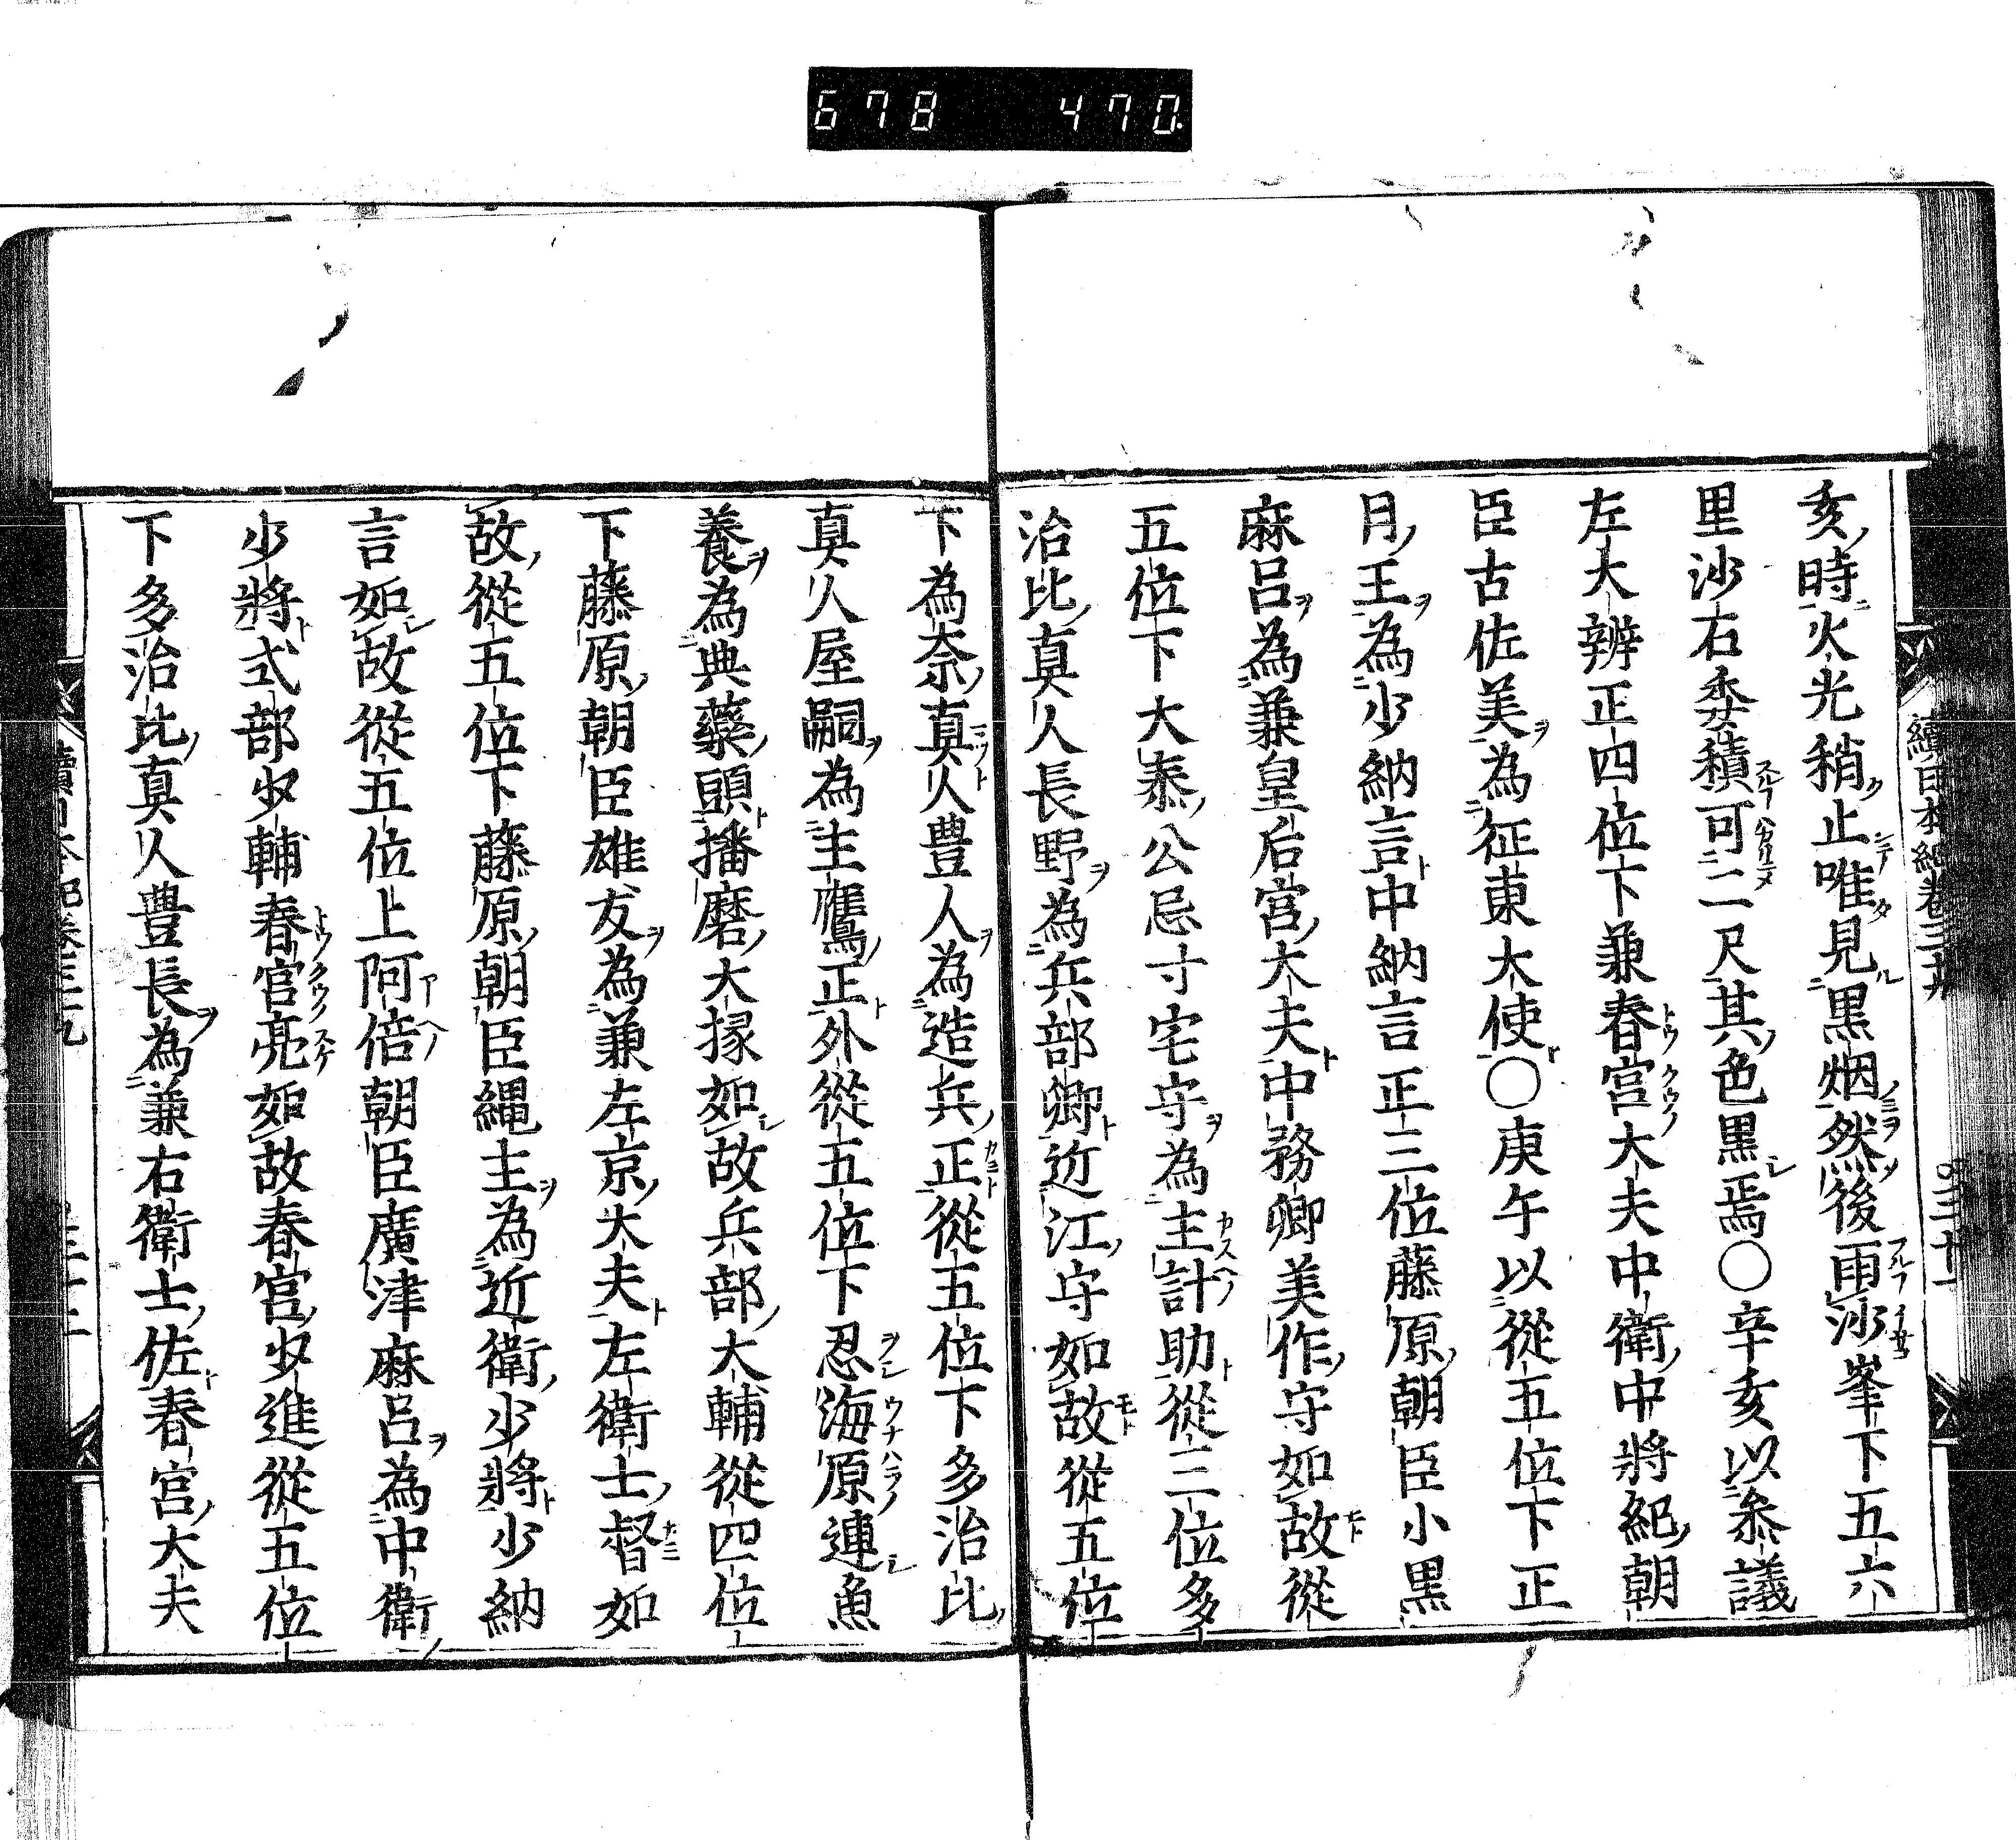 678 470.
亥時火光稍止唯見黒烟然後雨沙峯下五六
里沙石委積可二尺其色黒焉〇辛亥以参議
左大辨正四位下兼春宮大夫中衛中將紀朝
臣古佐美為征東大使〇庚午以從五位下正
月王為少納言中納言正三位藤原朝臣小黒
麻呂為兼皇后宮大夫中務卿美作守如故從
五位下大泰公忌寸宅守為主計助從三位多
治比真人長野為兵部卿近江守如故從五位
下為奈真人豊人為造兵正從五位下多治比
真人屋嗣為主鷹正外從五位下忍海原連魚
養為典藥頭播磨大掾如故兵部大輔從四位
下藤原朝臣雄友為兼左京大夫左衛士督如
故從五位下藤原朝臣縄主為近衛少將少納
言如故從五位上阿倍朝臣廣津麻呂為中衛
少將式部少輔春宮亮如故春宮少進從五位
下多治比真人豊長為兼右衛士佐春宮大夫